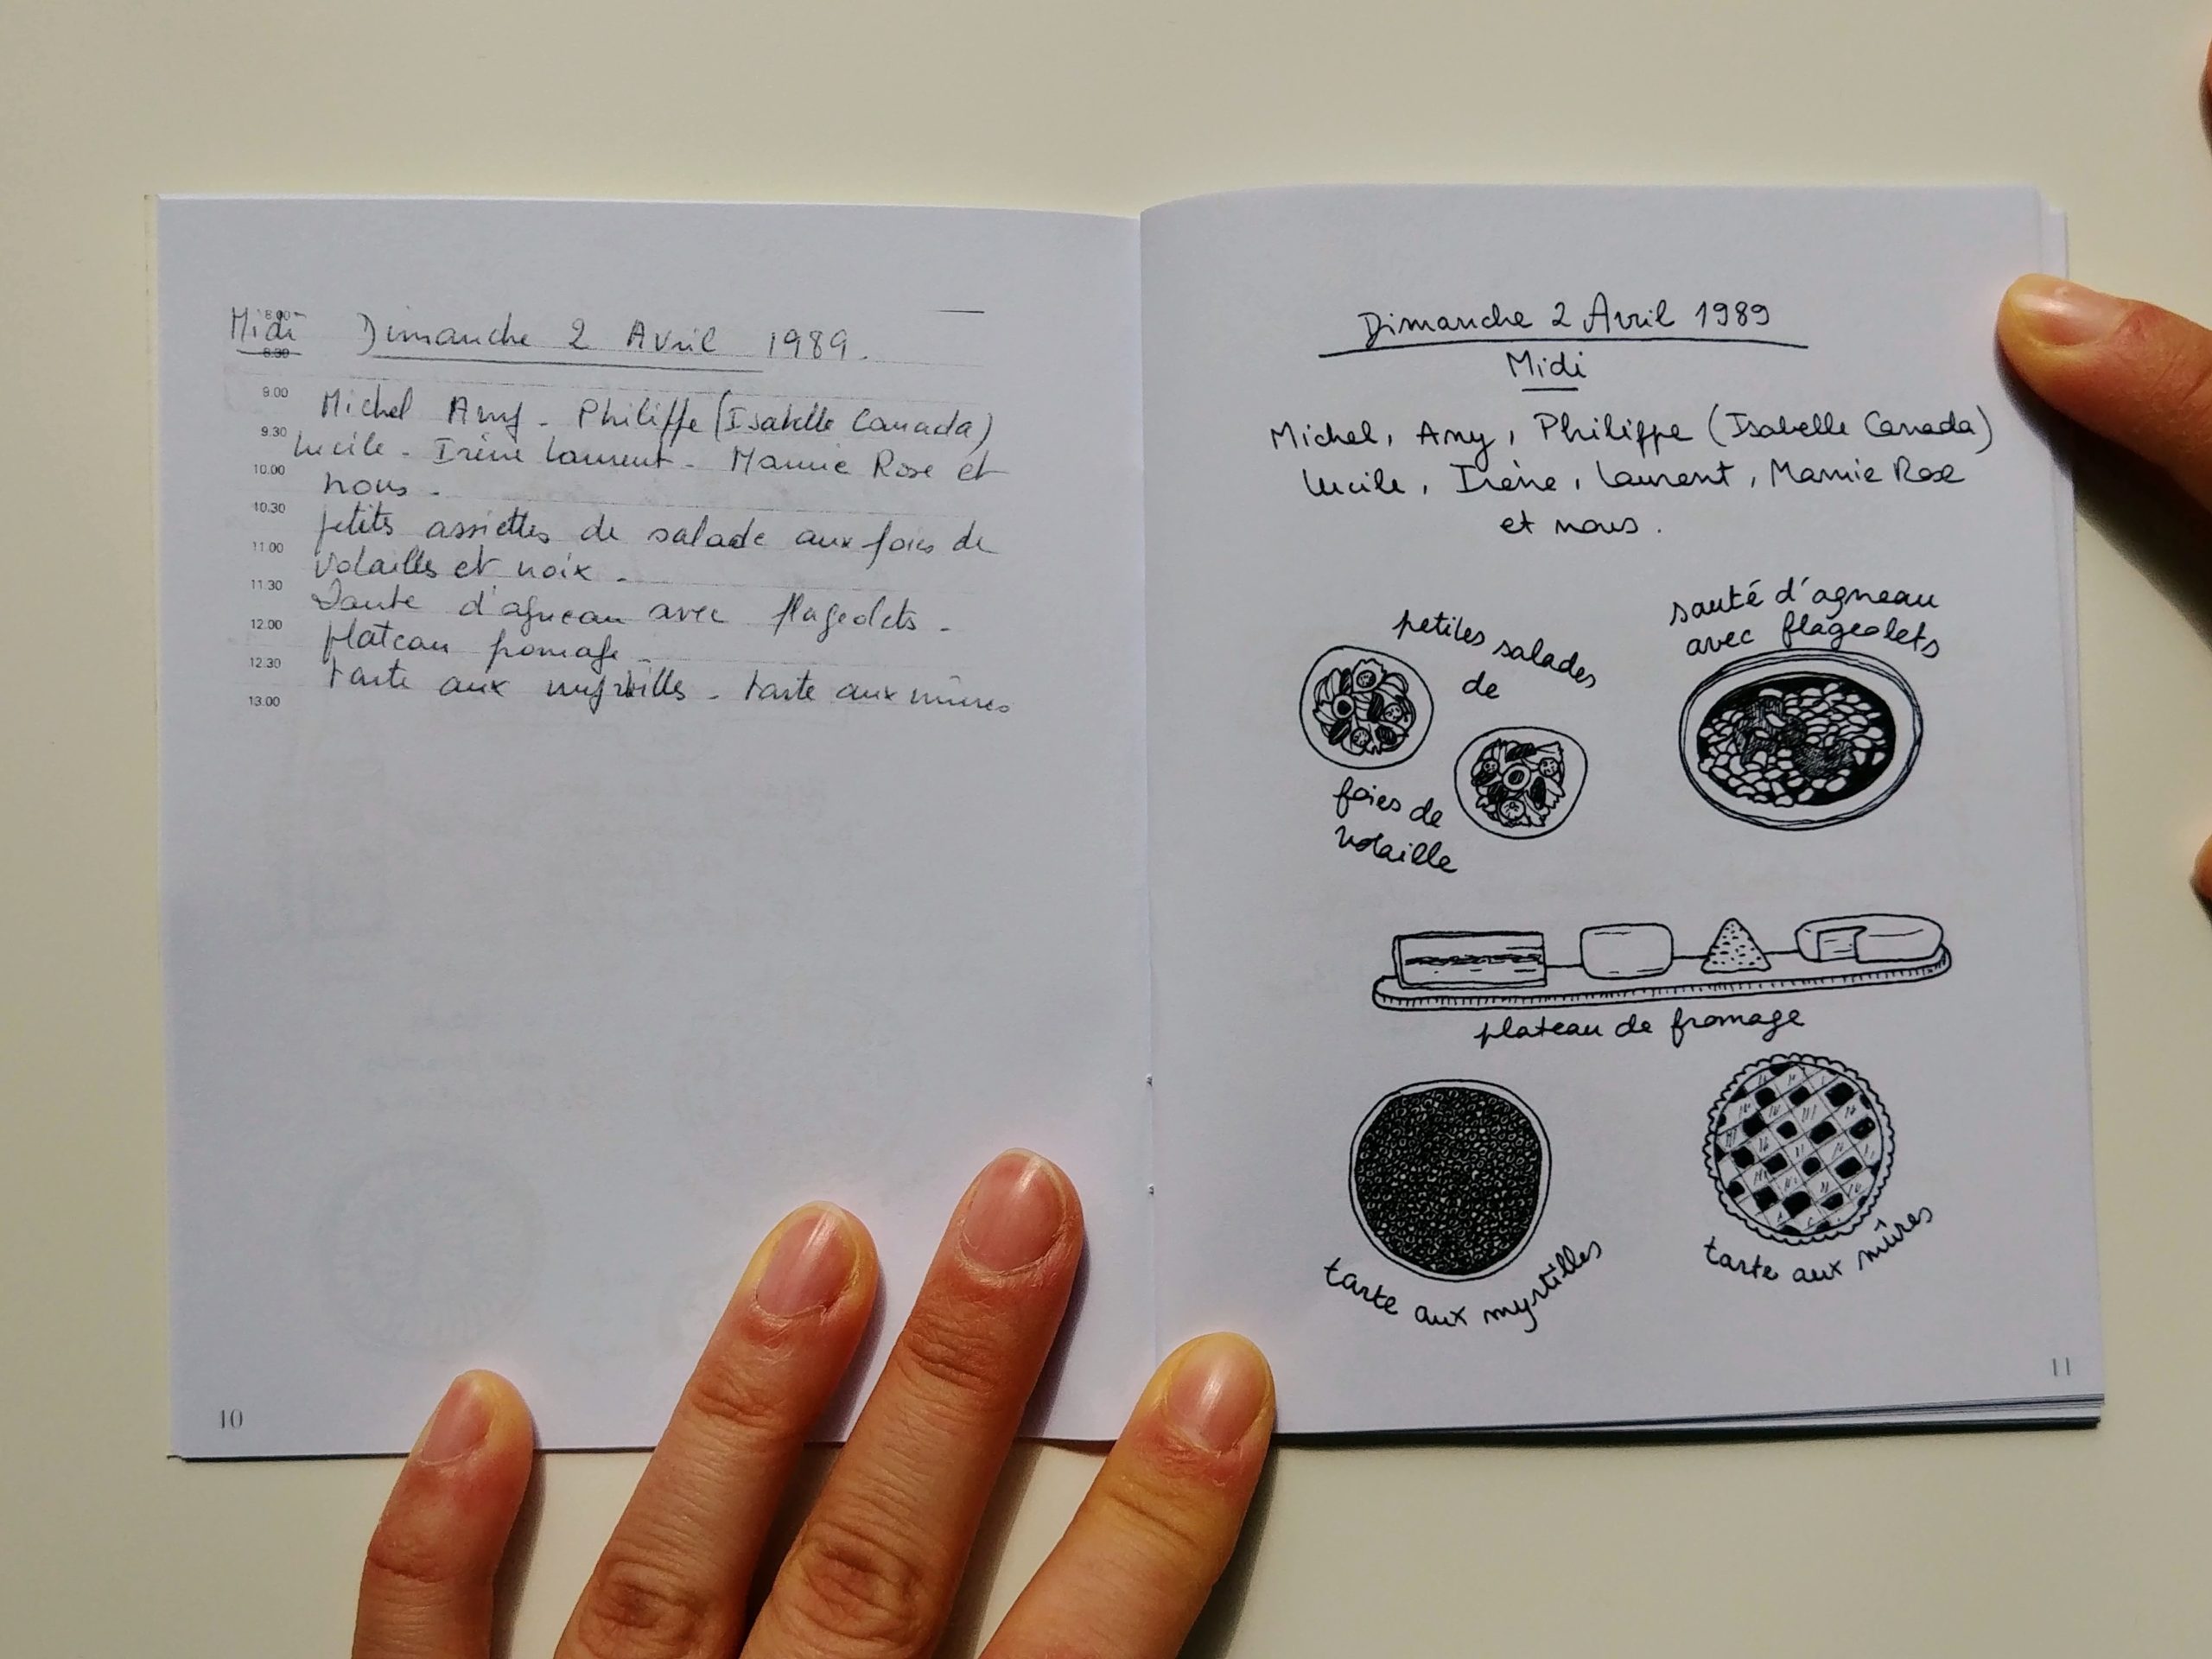 Midi Dimanche 2 Avril 1989.
8.00
8.30
9.00
Michel Amy - Philippe (Isabelle Canada)
9.30
Lucile - Irène Laurent - Mamie Rose et
10.00
nous -
10.30
petits assiettes de salade aux foies de
11.00
volailles et noix -
11.30
Sauté d'agneau avec flageolets -
12.00
plateau fromage -
12.30
tarte aux myrtilles - tarte aux mûres
13.00
10
Dimanche 2 Avril 1989
Midi
Michel, Amy, Philippe (Isabelle Canada)
Lucile, Irène, Laurent, Mamie Rose
et nous.
petites salades
de
foies de
volaille
sauté d'agneau
avec flageolets
plateau de fromage
tarte aux myrtilles
tarte aux mûres
11